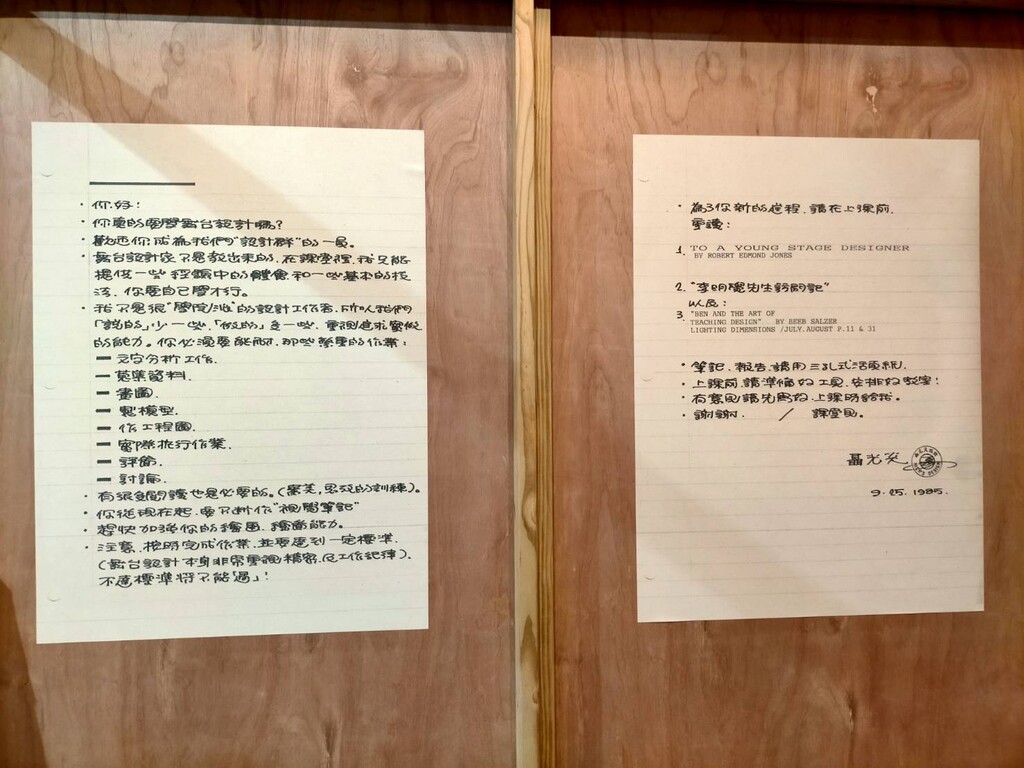 · 你好!
· 你真的要學舞台設計嗎?
· 歡迎你成為我們"設計群"的一員。
· 舞台設計從不是教出來的,在課堂裡,我只能
提供一些經驗中的體會和一些基本的技
法,你要自己學才行。
· 我不是很"學院派"的設計工作者,所以我們
「說的」少一些,「做的」多一些,重視追求實做
的能力。你必須要能耐,那些繁重的作業:
— 文字分析工作.
— 蒐集資料.
— 畫圖.
— 製模型.
— 作工程圖.
— 實際執行作業.
— 評節.
— 討論.
· 有很多閱讀也是必要的。(審美,思攷的訓練)。
· 你從現在起,要不斷作"視覺筆記"
· 趕快加強你的繪圖,繪畫能力。
· 注意,按時完成作業,並要達到一定標準.
(舞台設計本身非常重視精密,及工作紀律).
不達標準將不能過」!
· 為了你新的進程,請在上課前.
重讀:
1. TO A YOUNG STAGE DESIGNER
BY ROBERT EDMOND JONES
2. "李明覺先生訪問記"
以及:
3. "BEN AND THE ART OF
TEACHING DESIGN" BY BEEB SALZER
LIGHTING DIMENSIONS /JULY.AUGUST P.11 & 31
· 筆記,報告,請用三孔式活頁紙.
· 上課前,請準備好工具,安排好教室!
· 有意見請先寫好,上課時給我。
· 謝謝. / 課堂見。
聶光炎
9.25.1985.